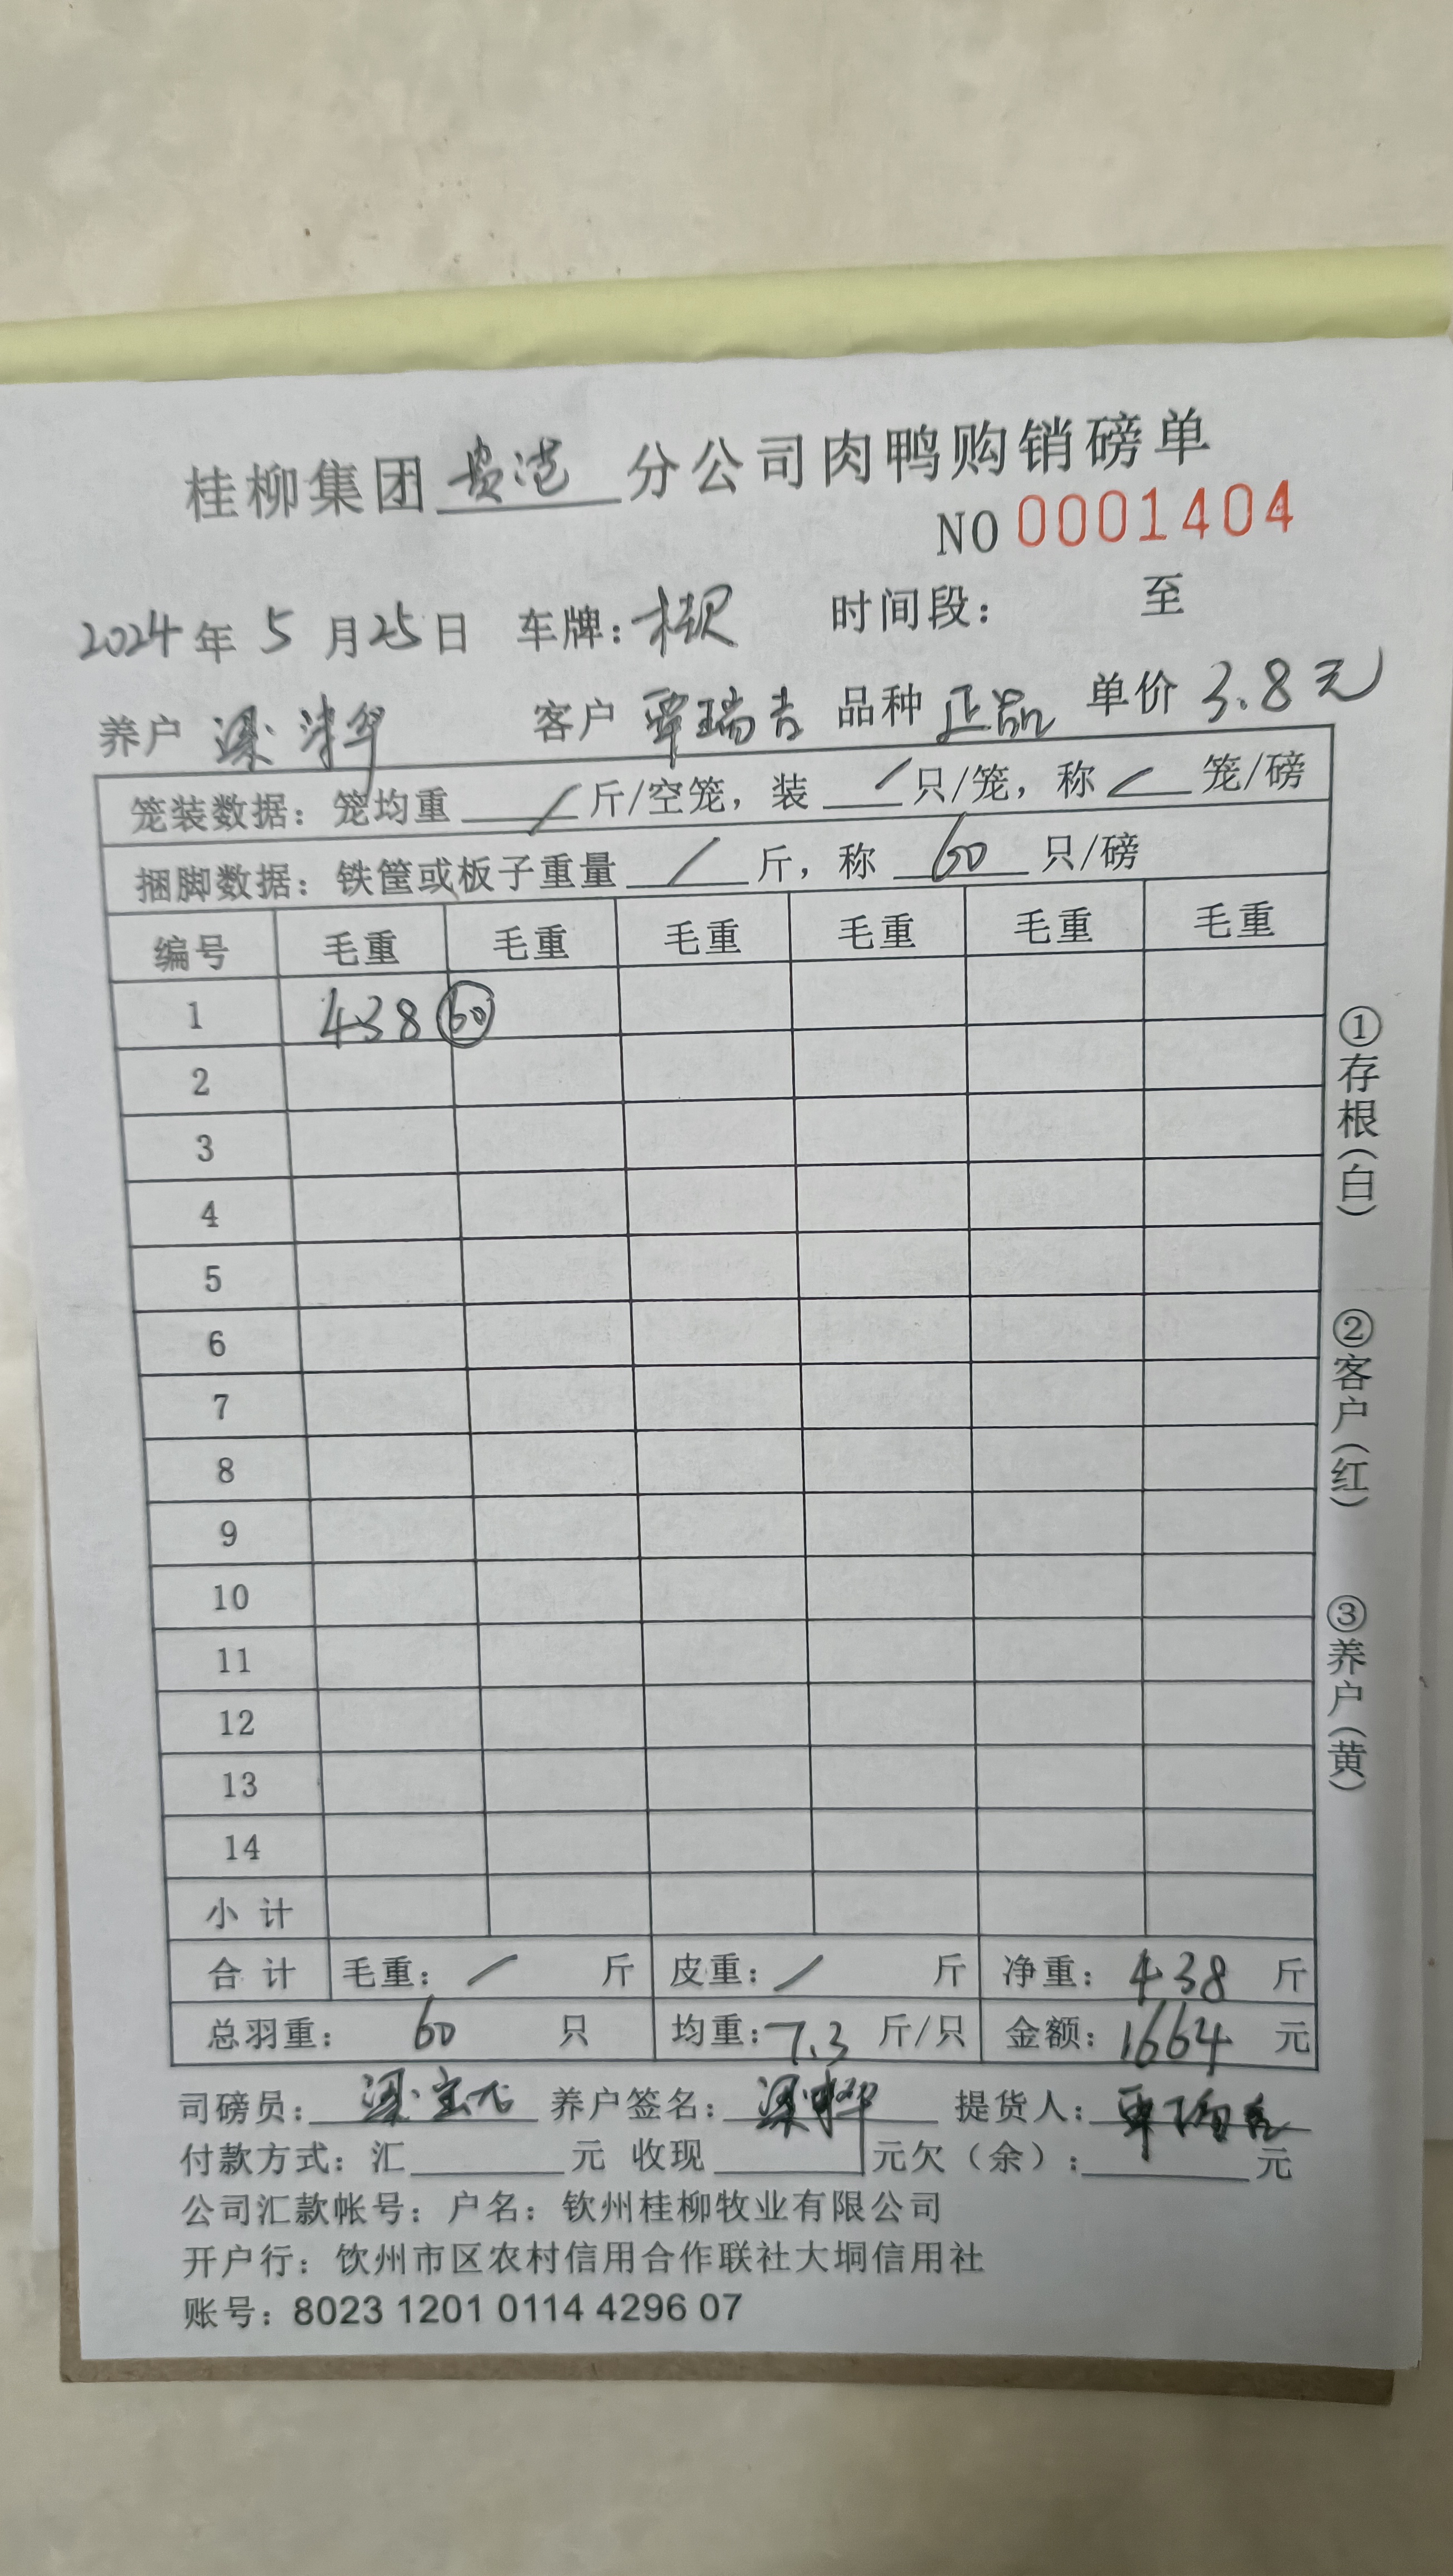 桂柳集团 贵港 分公司肉鸭购销磅单
NO 0001404
2024年 5 月 25日 车牌: 时间段: 至
养户 梁 客户 覃瑞吉 品种 正品 单价 3.8元
笼装数据: 笼均重 / 斤/空笼, 装 / 只/笼, 称 / 笼/磅
捆脚数据: 铁筐或板子重量 / 斤, 称 60 只/磅
编号 毛重 毛重 毛重 毛重 毛重 毛重
1 438 60
2
3
4
5
6
7
8
9
10
11
12
13
14
小 计
合 计 毛重: / 斤 皮重: / 斤 净重: 438 斤
总羽重: 60 只 均重: 7.3 斤/只 金额: 1664 元
司磅员: 梁 养户签名: 梁 提货人: 覃瑞吉
付款方式: 汇 元 收现 元欠(余): 元
公司汇款帐号: 户名: 钦州桂柳牧业有限公司
开户行: 钦州市区农村信用合作联社大垌信用社
账号: 8023 1201 0114 4296 07
①存根(白)
②客户(红)
③养户(黄)